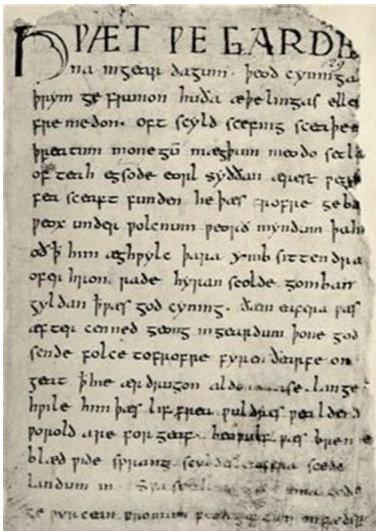 HǷÆT ǷE GARDE
na ingear dagum. þeod cyninga
þrym ge frunon huða æþelingas elle
fre medon. oft scyld scefing sceaþe
þreatum monegū mægþum meodo setla
of teah egsode eorl syððan ærest ƿear
fea sceaft funden he þæs frofre geba
ƿeox under ƿolcnum ƿeorð myndum þah
oð ꝥ him æghƿylc þara ymb sittendra
ofer hron rade hyran scolde gomban
gyldan ꝥ ƿæs god cyning. ðæm eafera ƿæs
æfter cenned geong ingeardum þone god
sende folce tofrofre fyren ðearfe on
geat ꝥ hie ær drugon aldor ase. lange
hƿile him þæs lif frea ƿuldres ƿealdend
ƿorold are for geaf. beoƿulf ƿæs breme
blæd ƿide sprang scyldes eafera scede
landum in. Sƿa guma gode
ge ƿyrcean fromum feoh giftum